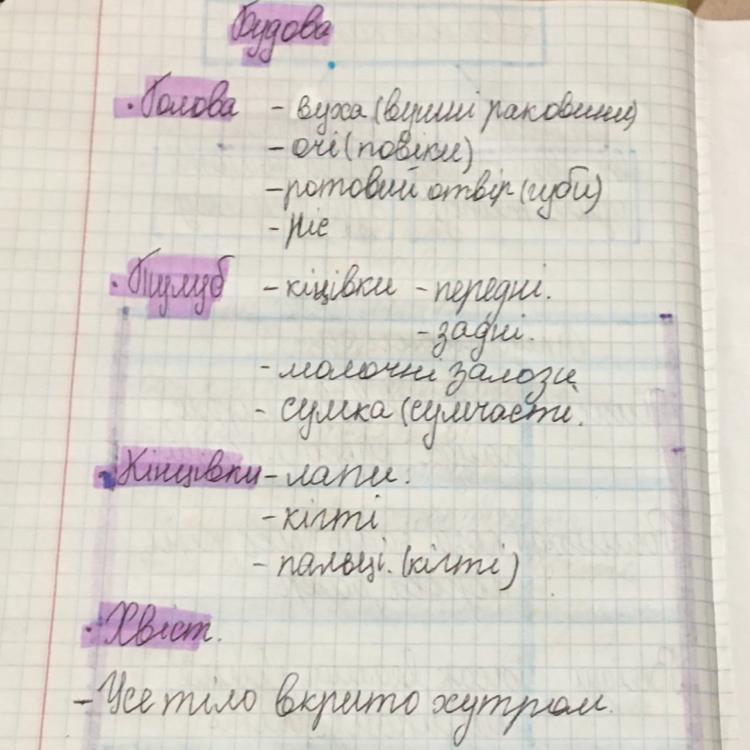 Будова
• Голова - вуха (вушні раковини)
- очі (повіки)
- ротовий отвір (губи)
- Ніс
• Тулуб - кіцівки - передні.
- задні.
- молочні залози
- сумка (сумчасті.
• Кінцівки - лапи.
- кігті
- пальці. (кігті)
• Хвіст.
- Усе тіло вкрито хутром.